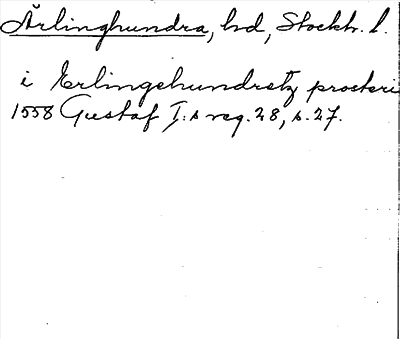 Ärlinghundra, hd, Stockh. l.
i Erlingehundretz procteri
1558 Gustaf I:s reg. 28, s. 27.